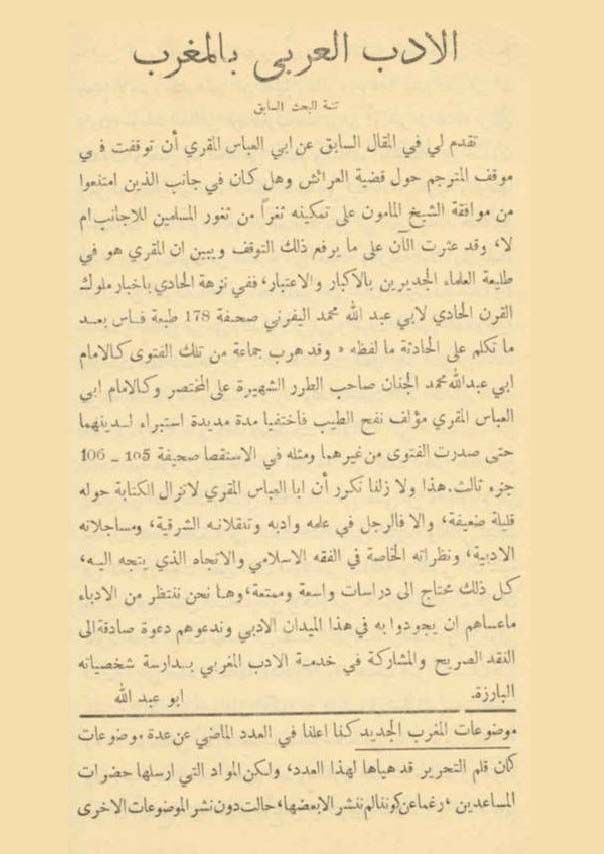 الادب العربي بالمغرب
تتمة البحث السابق
تقدم لي في المقال السابق عن ابي العباس المقري أن توقفت في
موقف المترجم حول قضية العرائش وهل كان في جانب الذين امتنعوا
من موافقة الشيخ المامون على تمكينه ثغراً من ثغور المسلمين للاجانب ام
لا، وقد عثرت الآن على ما يرفع ذلك التوقف ويبين ان المقري هو في
طليعة العلماء الجديرين بالاكبار والاعتبار، ففي نزهة الحادي باخبار ملوك
القرن الحادي لابي عبد الله محمد اليفرني صحيفة 178 طبعة فاس بعد
ما تكلم على الحادثة ما لفظه « وقد هرب جماعة من تلك الفتوى كالامام
ابي عبدالله محمد الجنان صاحب الطرر الشهيرة على المختصر وكالامام ابي
العباس المقري مؤلف نفح الطيب فاختفيا مدة مديدة استبراء لدينهما
حتى صدرت الفتوى من غيرهما ومثله في الاستقصا صحيفة 105 - 106
جزء ثالث. هذا ولا زلنا نكرر أن ابا العباس المقري لاتزال الكتابة حوله
قليلة ضعيفة، والا فالرجل في علمه وادبه وتنقلاته الشرقية، ومساجلاته
الادبية، ونظراته الخاصة في الفقه الاسلامي والاتجاه الذي يتجه اليه،
كل ذلك محتاج الى دراسات واسعة وممتعة، وها نحن ننتظر من الادباء
ماعساهم ان يجودوا به في هذا الميدان الادبي وندعوهم دعوة صادقة الى
النقد الصريح والمشاركة في خدمة الادب المغربي بدارسة شخصياته
البارزة. ابو عبد الله
موضوعات المغرب الجديد كنا اعلنا في العدد الماضي عن عدة موضوعات
كان قلم التحرير قد هياها لهذا العدد، ولكن المواد التي ارسلها حضرات
المساعدين، رغما عن كوننا لم ننشر الا بعضها، حالت دون نشر الموضوعات الاخرى